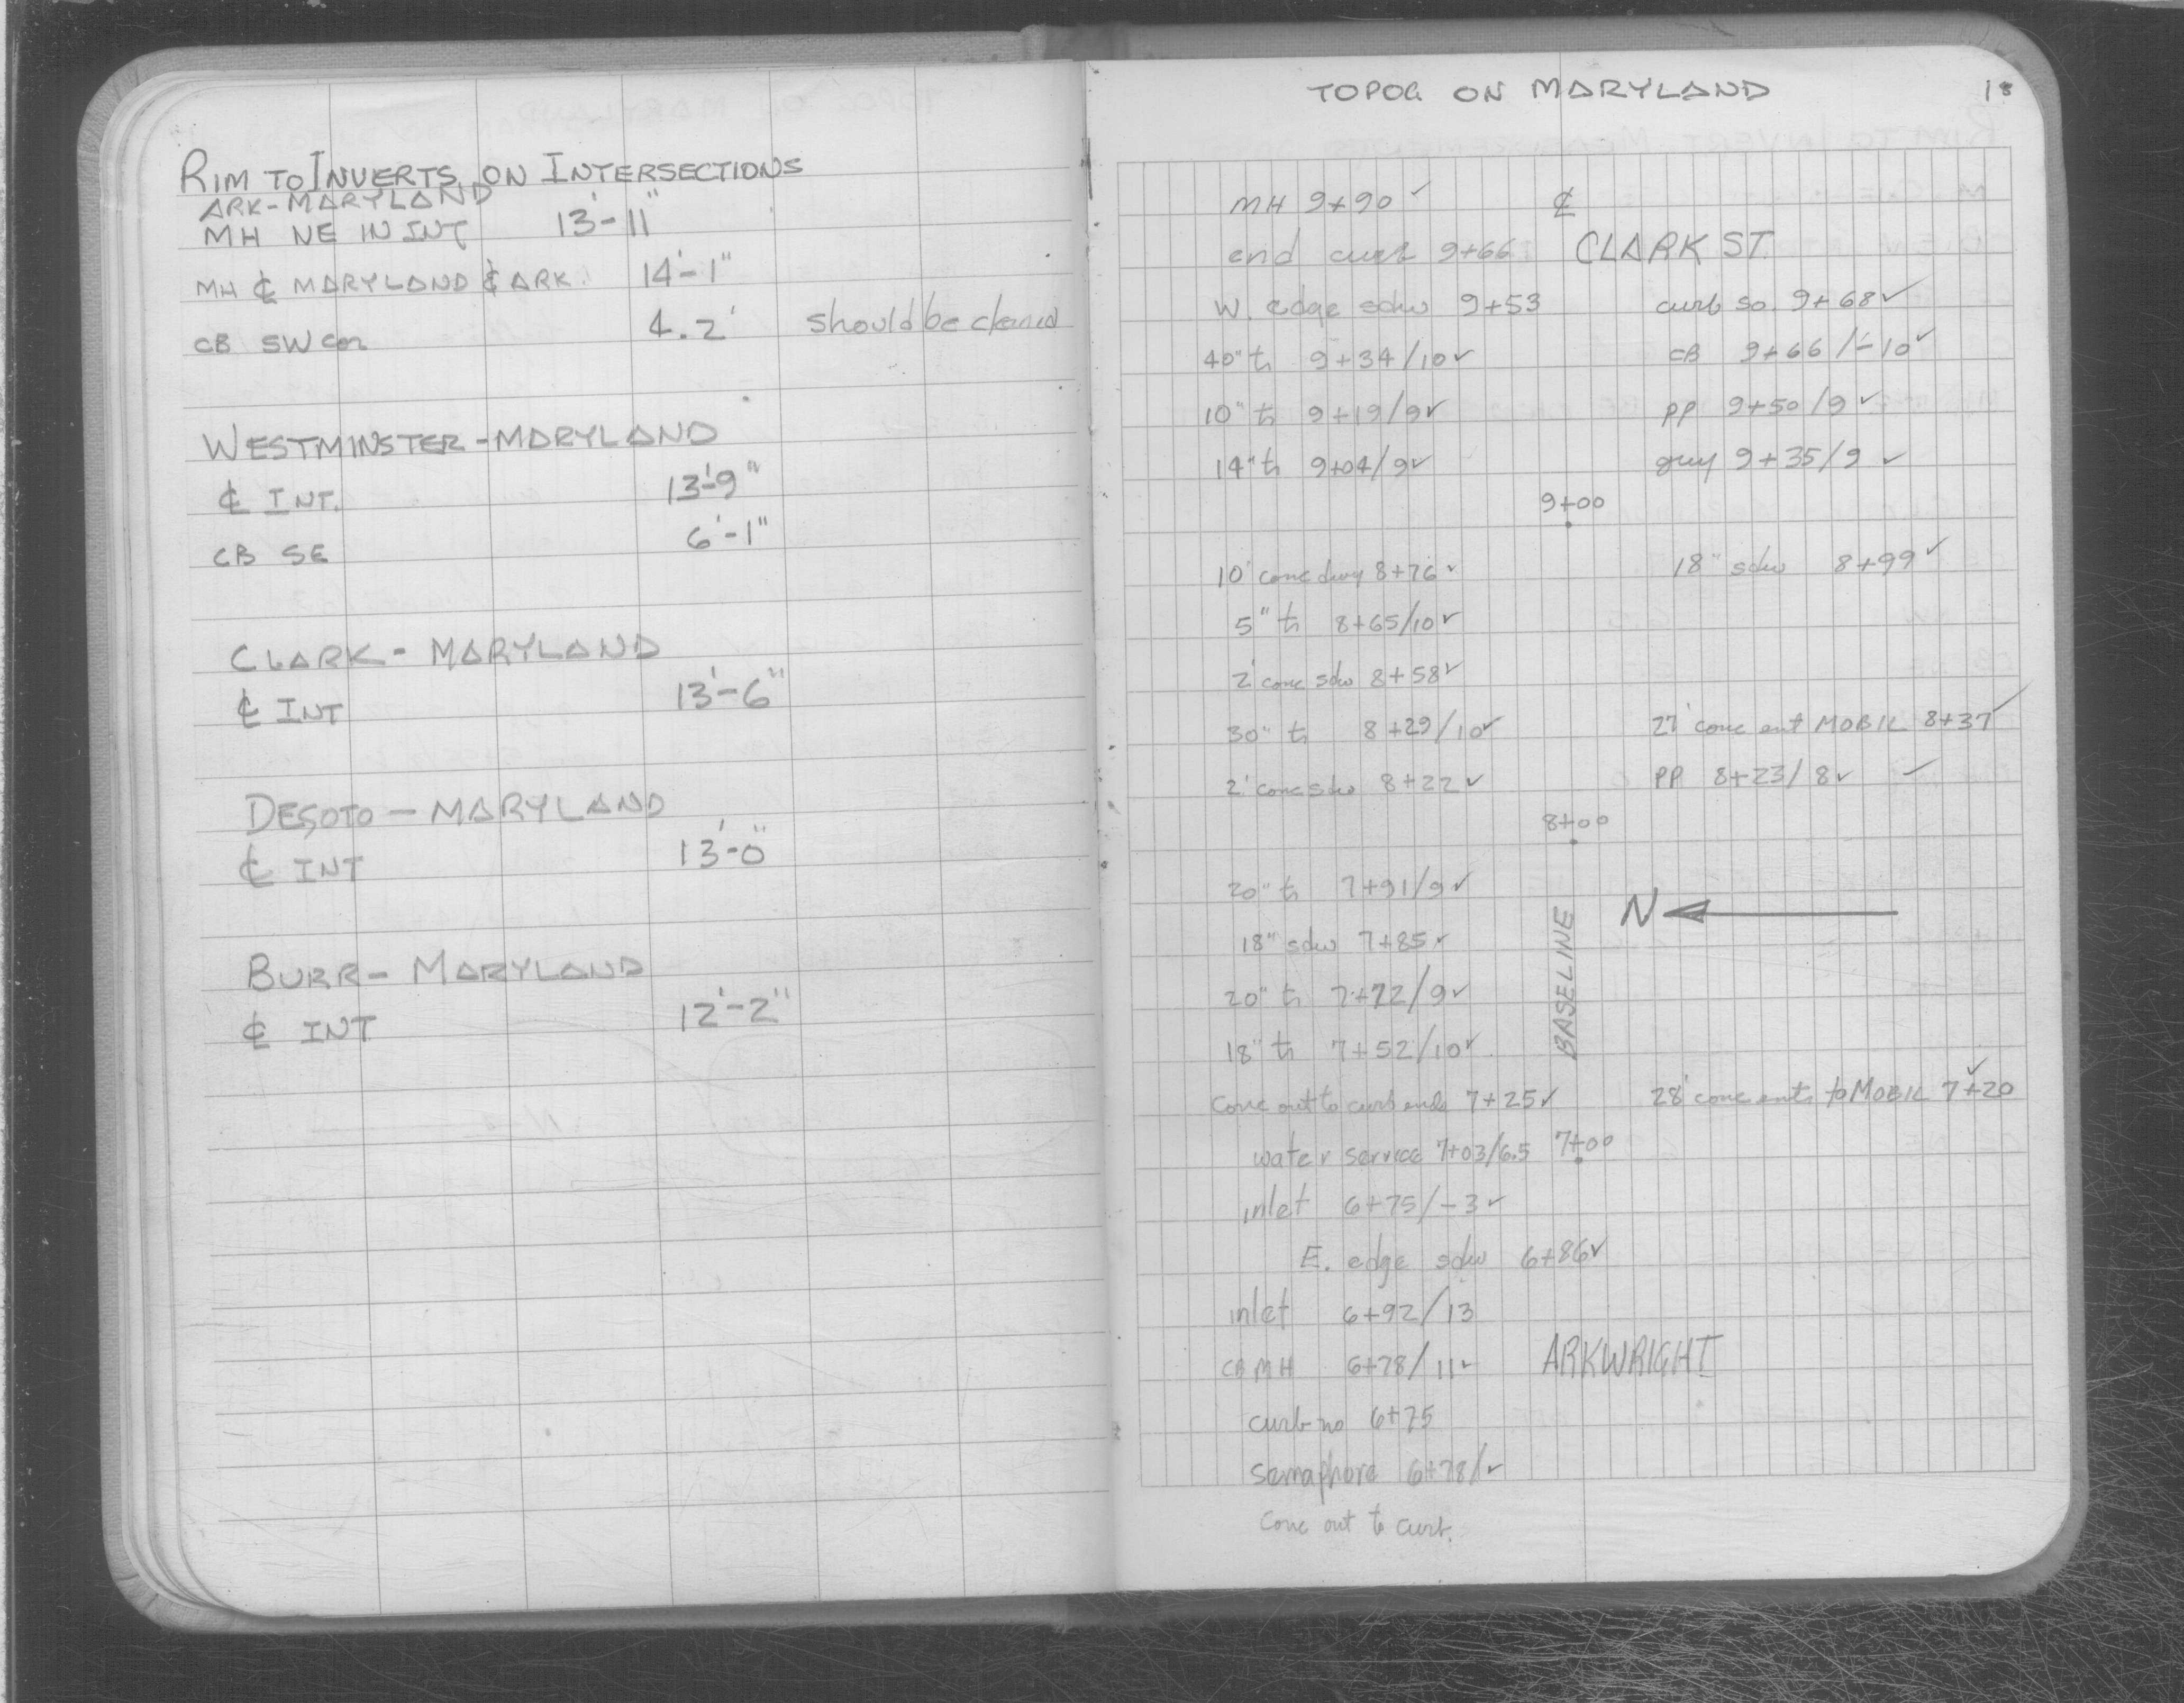 RIM TO INVERTS ON INTERSECTIONS
ARK-MARYLAND
MH NE IN INT 13'-11"
MH ℄ MARYLAND ℄ ARK. 14'-1"
CB SW cor 4.2' should be cleaned
WESTMINSTER-MARYLAND
℄ INT. 13'-9"
CB SE 6'-1"
CLARK- MARYLAND
℄ INT 13'-6"
DESOTO - MARYLAND
℄ INT 13'-0"
BURR- MARYLAND
℄ INT 12'-2"
TOPOG ON MARYLAND 18
MH 9+90 ✓ ℄
end curb 9+66 CLARK ST.
W. edge sdw 9+53 curb so. 9+68 ✓
40" tr 9+34/10 ✓ CB 9+66/-10 ✓
10" tr 9+19/9 ✓ PP 9+50/9 ✓
14" tr 9+04/9 ✓ guy 9+35/9 ✓
9+00
10' conc dwy 8+76 ✓ 18" sdw 8+99 ✓
5" tr 8+65/10 ✓
2' conc sdw 8+58 ✓
30" tr 8+29/10 ✓ 27' conc ent MOBIL 8+37 ✓
2' conc sdw 8+22 ✓ PP 8+23/8 ✓ ✓
8+00
20" tr 7+91/9 ✓
N
18" sdw 7+85 ✓
BASELINE
20" tr 7+72/9 ✓
18" tr 7+52/10 ✓
Conc out to curb ends 7+25 ✓ 28' conc ent. to MOBIL 7+20 ✓
water service 7+03/6.5 7+00
inlet 6+75/-3 ✓
E. edge sdw 6+86 ✓
inlet 6+92/13
CB MH 6+78/11 ✓ ARKWRIGHT
curb no 6+75
Semaphore 6+78/ ✓
Conc out to curb.